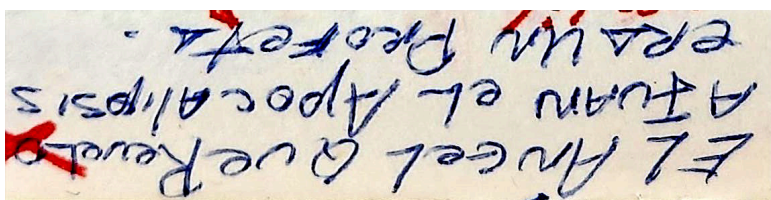 EL ANGEL QUE Revelo
A JUAN eL APOCALIPSIS
ERA UN PROFETA.